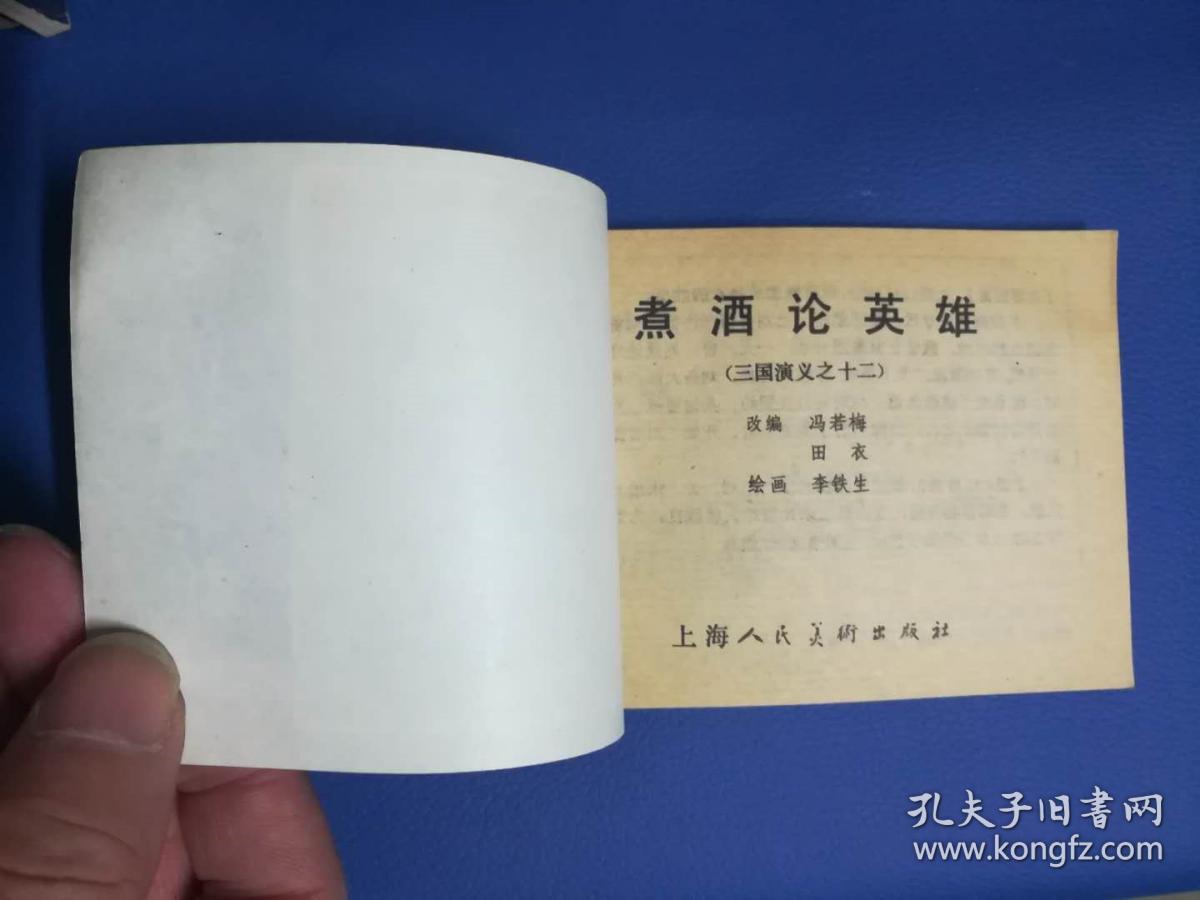 煮酒论英雄
（三国演义之十二）
改编 冯若梅
田衣
绘画 李铁生
上海人民美術出版社
孔夫子旧书网
www.kongfz.com